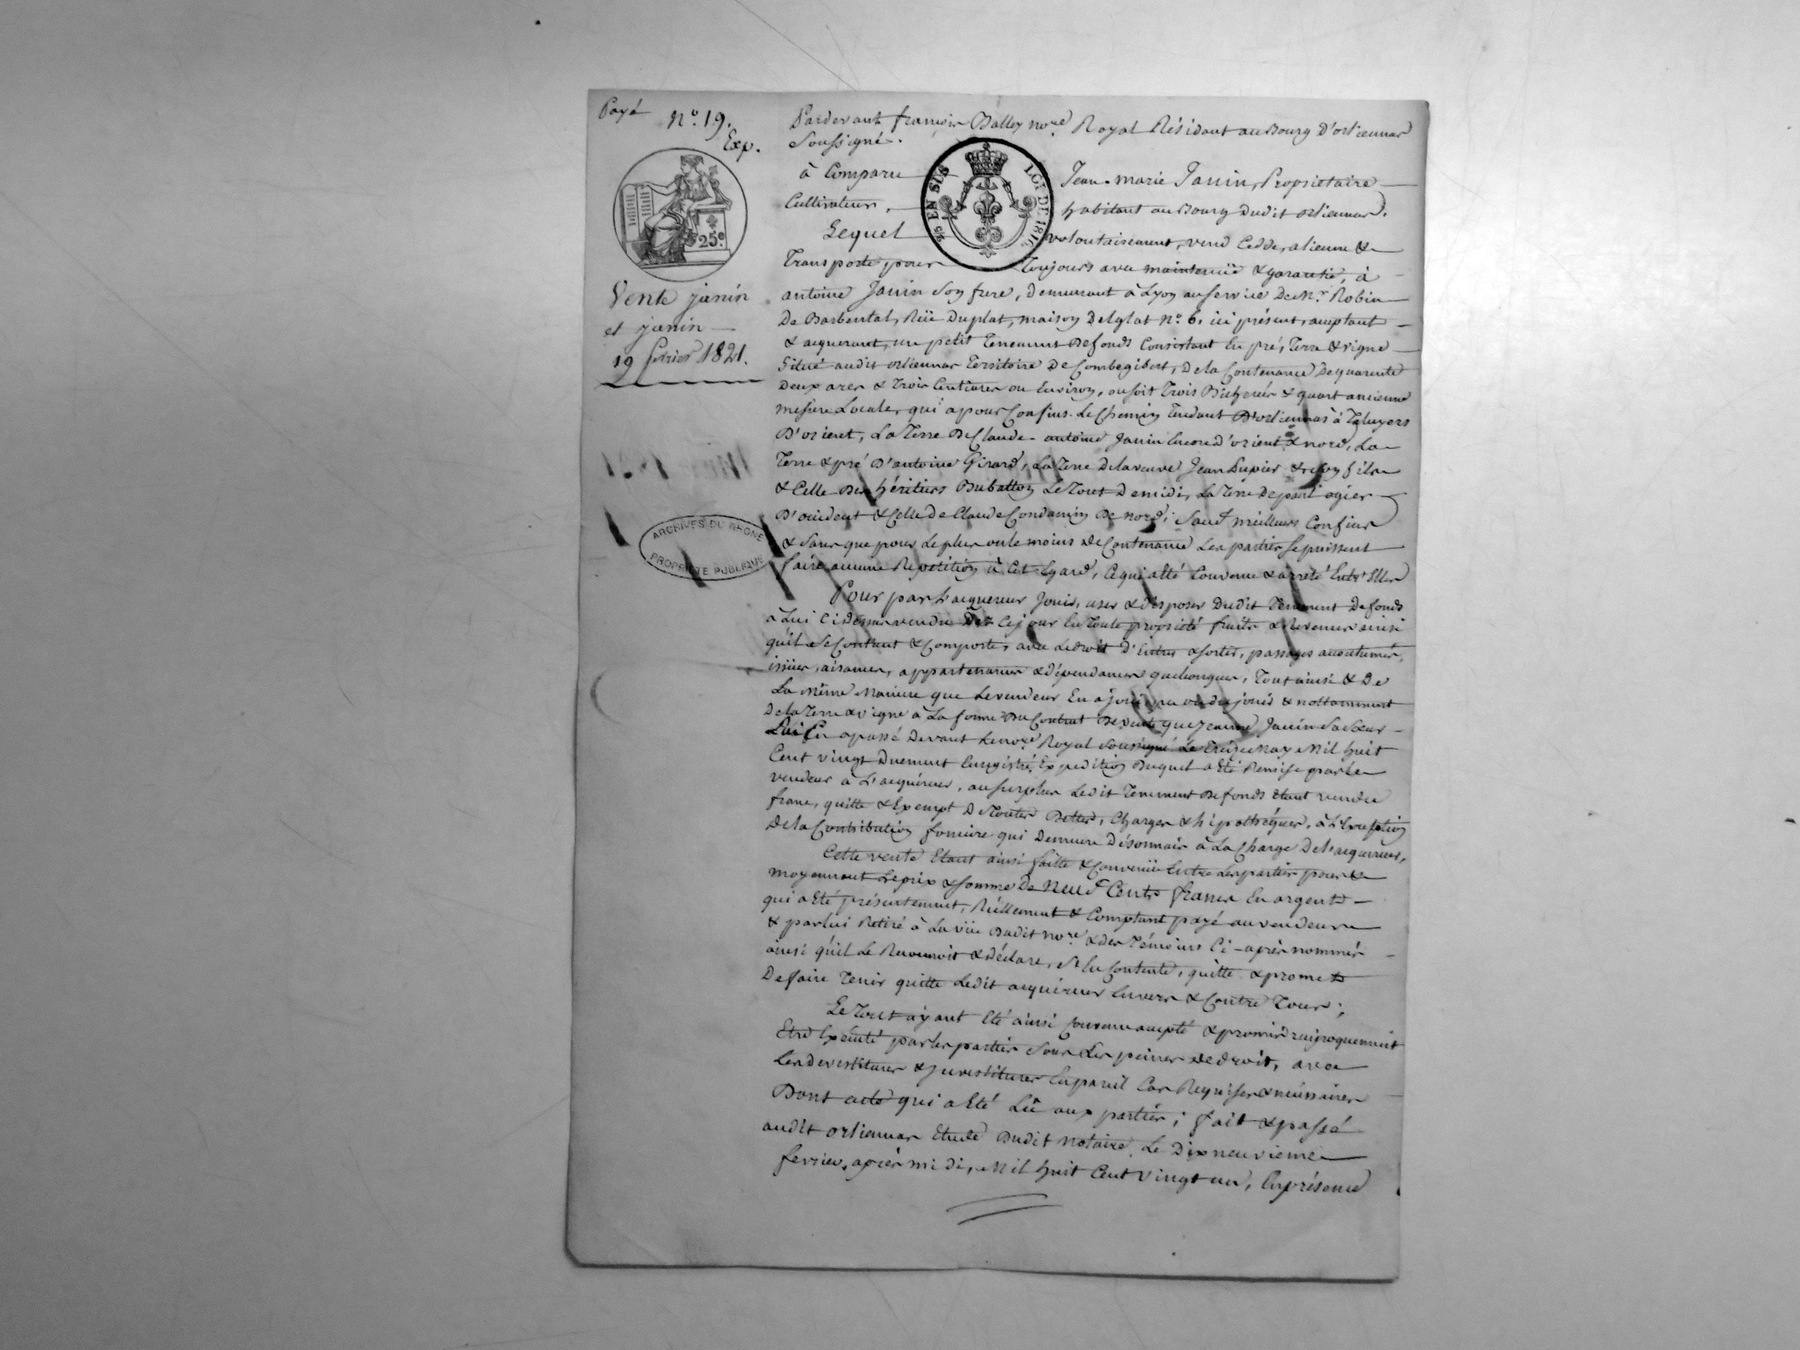 Payé
N.º 19.
Exp.
25.c
Vente janin
et janin
19 fevrier 1821.
ARCHIVES DU RHÔNE
PROPRIÉTÉ PUBLIQUE
25 EN SUS LOI DE 1816
Pardevant françois Balley no.re Royal Résidant au Bourg D'orliennas
Soussigné.
à Comparu Jean-marie Janin, Propriétaire
Cultivateur, habitant au Bourg dudit orliennas.
Lequel volontairement, vend Cedde, alienne &
Transporte pour Toujours avec maintenüe & garantie, à
antoine Janin Son frere, demeurant à Lyon au service De M.r Robin
De Barbental, Rüe Duplat, maison Delglat N.º 6, ici présent, acceptant
& acquerant, un petit Tenement De fonds Consistant En pré, Terre & vigne
Situé audit orliennas Territoire De Combegibert, De la Contenance De quarante
deux ares & Trois Centiares ou Environ, ou soit Trois Bicherés & quart ancienne
mesure Locale, qui a pour Confins. Le Chemin Tendant D'orliennas à Taluyers
D'orient, La Terre De Claude-antoine Janin Encore d'orient & nord, La
Terre & pré D'antoine Girard, La Terre De la veuve Jean Lupier & son fils
& Celle Des héritiers Dubatton Le Tout De midi, La Terre De paul ogier
D'occident & Celle de Claude Condamin De nord; Sauf meilleurs Confins
& Sans que pour Le plus ou le moins De Contenance Les parties Se puissent
faire aucune Repetition à Cet Egard, Ce qui a Eté Convenu & arreté Entr'Elles
Pour par L'acquereur Jouir, user & Disposer Dudit Tenement De fonds
à Lui Ci Dessus vendu Dès Ce jour En Toute proprieté fruits & Revenus ainsi
qu'il Se Contient & Comporte, avec Le droit D'Entrer & sortir, passages accoutumés,
issües, aisances, appartenances & dépendances quelconques, Tout ainsi & De
La Même Maniere que Le vendeur En a joui ou dû jouir & nottamment
De la Terre & vigne à La forme Du Contrat De vente que jeanne Janin Sa Soeur
Lui En a passé Devant Le no.re Royal Soussigné Le Treize May Mil huit
Cent vingt Duement Enregistré, Expedition Duquel a Eté Remise par Le
vendeur à L'acquereur, au surplus Ledit Tenement De fonds Etant vendu
franc, quitte & Exempt De Toutes Dettes, Charges & hipothéques, à L'Exception
De la Contribution fonciere qui Demeure Désormais à La Charge De L'acquereur,
Cette vente Etant ainsi faitte & Convenüe Entre Les parties pour &
moyennant Le prix & Somme De Neuf Cents francs En argent
qui a Eté présentement, Réellement & Comptant payé au vendeur
& par Lui Retiré à La vüe Dudit no.re & Des Témoins Ci-après nommés
ainsi qu'il Le Reconnoit & Déclare, S'En Contente, quitte & promet
De faire Tenir quitte Ledit acquereur Envers & Contre Tous;
Le Tout ayant Eté ainsi Convenu accepté & promis réciproquement
Etre Executé par Les parties Sous Les peines De droit, avec
Les Devestitures & Investitures En pareil Cas Requises & nécessaires
Dont acte qui a Eté Lû aux parties; fait & passé
audit orliennas Etude Dudit notaire. Le Dix neuvieme
fevrier, après midi, Mil huit Cent vingt un, En présence